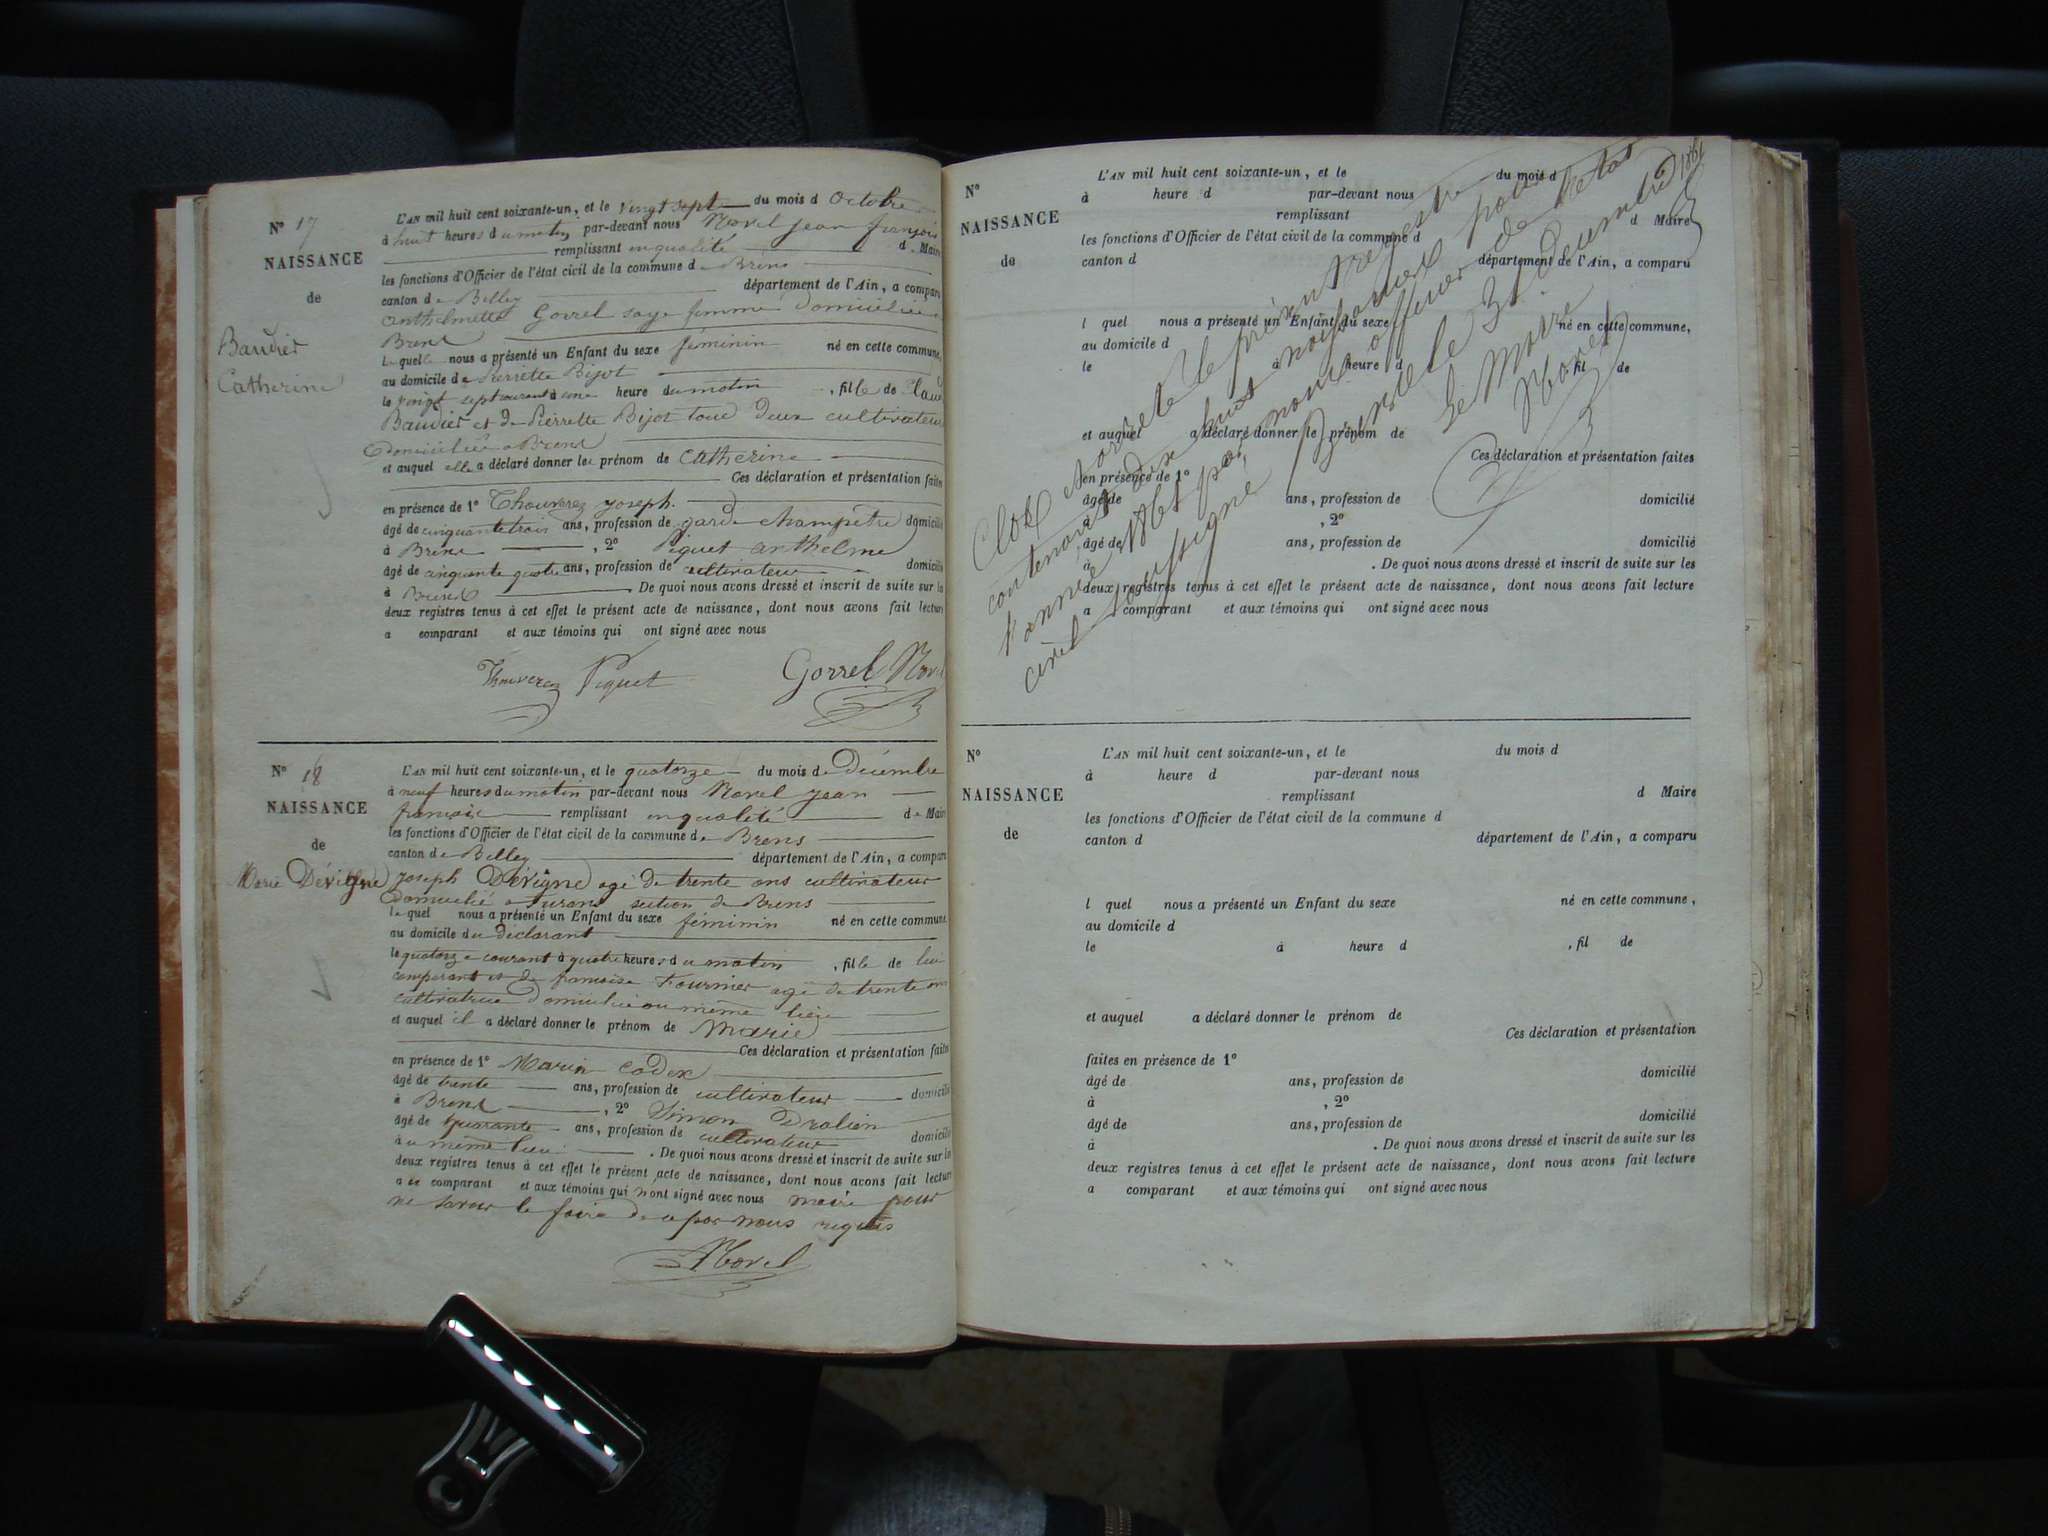 N° 17
NAISSANCE
de
Baudier
Catherine
L'AN mil huit cent soixante-un, et le vingt sept du mois d Octobre
à huit heures du matin par-devant nous Morel jean françois
remplissant en qualité de Maire
les fonctions d'Officier de l'état civil de la commune de Brens
canton de Belley département de l'Ain, a comparu
anthelmette Gorrel sage femme domiciliée a
Brens
laquelle nous a présenté un Enfant du sexe féminin né en cette commune,
au domicile de Pierrette Bijot
le vingt sept courant à une heure du matin , fille de Claude
Baudier et de Pierrette Bijot tous deux cultivateurs
domiciliés a Brens
et auquel elle a déclaré donner le prénom de Catherine
Ces déclaration et présentation faites
en présence de 1° Thouverez joseph.
âgé de cinquante trois ans, profession de garde champêtre domicilié
à Brens , 2° Piquet anthelme
âgé de cinquante quatre ans, profession de cultivateur domicilié
à Brens . De quoi nous avons dressé et inscrit de suite sur les
deux registres tenus à cet effet le présent acte de naissance, dont nous avons fait lecture
a comparant et aux témoins qui ont signé avec nous
Thouverez Piquet Gorrel Morel
N° 18
NAISSANCE
de
Marie Dévigne
L'AN mil huit cent soixante-un, et le quatorze du mois de Décembre
à neuf heures du matin par-devant nous Morel jean
françois remplissant en qualité de Maire
les fonctions d'Officier de l'état civil de la commune de Brens
canton de Belley département de l'Ain, a comparu
joseph Dévigne agé de trente ans cultivateur
domicilié a section de Brens
lequel nous a présenté un Enfant du sexe féminin né en cette commune,
au domicile du déclarant
le quatorze courant à quatre heures du matin , fille de lui
comparant et de françoise Fournier agé de trente ans
cultivatrice domiciliée au même lieu
et auquel il a déclaré donner le prénom de Marie
Ces déclaration et présentation faites
en présence de 1° Marin Codex
âgé de trente ans, profession de cultivateur domicilié
à Brens , 2° Simon
âgé de quarante ans, profession de cultivateur domicilié
à u même lieu . De quoi nous avons dressé et inscrit de suite sur les
deux registres tenus à cet effet le présent acte de naissance, dont nous avons fait lecture
a u comparant et aux témoins qui n'ont signé avec nous maire pour
ne savoir le faire de ce par nous requis
Morel
N°
NAISSANCE
de
L'AN mil huit cent soixante-un, et le du mois d
à heure d par-devant nous
remplissant d Maire
les fonctions d'Officier de l'état civil de la commune d
canton d département de l'Ain, a comparu
l quel nous a présenté un Enfant du sexe né en cette commune,
au domicile d
le à heure d , fil de
et auquel a déclaré donner le prénom de
Ces déclaration et présentation faites
en présence de 1°
âgé de ans, profession de domicilié
à , 2°
âgé de ans, profession de domicilié
à . De quoi nous avons dressé et inscrit de suite sur les
deux registres tenus à cet effet le présent acte de naissance, dont nous avons fait lecture
a comparant et aux témoins qui ont signé avec nous
Clos et arreté le présent registre
contenant dix huit naissances pour
l'année 1861 par nous officier de l'état
civil soussigné Brens le 31 décembre 1861
Le Maire
Morel
N°
NAISSANCE
de
L'AN mil huit cent soixante-un, et le du mois d
à heure d par-devant nous
remplissant d Maire
les fonctions d'Officier de l'état civil de la commune d
canton d département de l'Ain, a comparu
l quel nous a présenté un Enfant du sexe né en cette commune,
au domicile d
le à heure d , fil de
et auquel a déclaré donner le prénom de
Ces déclaration et présentation
faites en présence de 1°
âgé de ans, profession de domicilié
à , 2°
âgé de ans, profession de domicilié
à . De quoi nous avons dressé et inscrit de suite sur les
deux registres tenus à cet effet le présent acte de naissance, dont nous avons fait lecture
a comparant et aux témoins qui ont signé avec nous